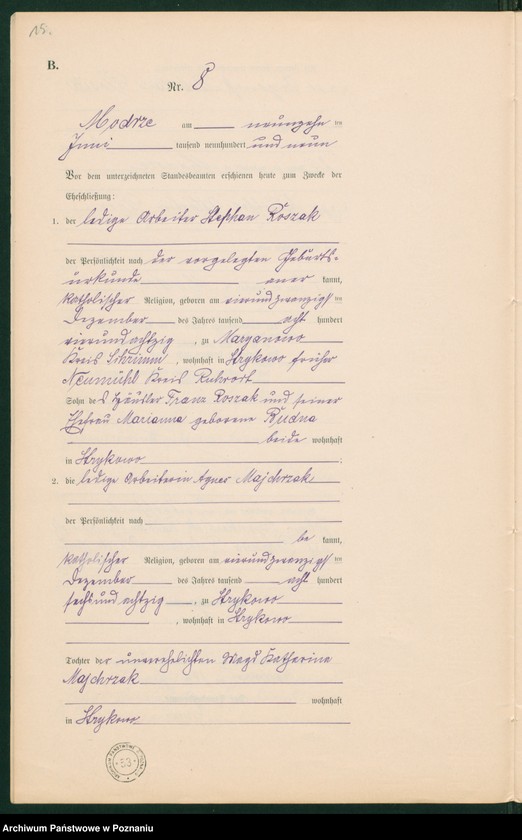 15.
B.
Nr. 8
Modrze am neunzehnten
Juni tausend neunhundert und neun
Vor dem unterzeichneten Standesbeamten erschienen heute zum Zwecke der
Eheschließung:
1. der ledige Arbeiter Stephan Roszak
der Persönlichkeit nach der vorgelegten Geburts-
urkunde aner kannt,
katholischer Religion, geboren am vierundzwanzigsten
Dezember des Jahres tausend acht hundert
vierundachtzig , zu Maryanowo
Kreis Schrimm , wohnhaft in Strykowo früher
Neumühl Kreis Ruhrort
Sohn des Häusler Franz Roszak und seiner
Ehefrau Marianna geborene Budna
beide wohnhaft
in Strykowo ;
2. die ledige Arbeiterin Agnes Majchrzak
der Persönlichkeit nach
be kannt,
katholischer Religion, geboren am vierundzwanzigsten
Dezember des Jahres tausend acht hundert
sechsundachtzig , zu Strykowo
, wohnhaft in Strykowo
Tochter der unverehelichten Magd Katharina
Majchrzak
wohnhaft
in Strykowo
53
Archiwum Państwowe w Poznaniu